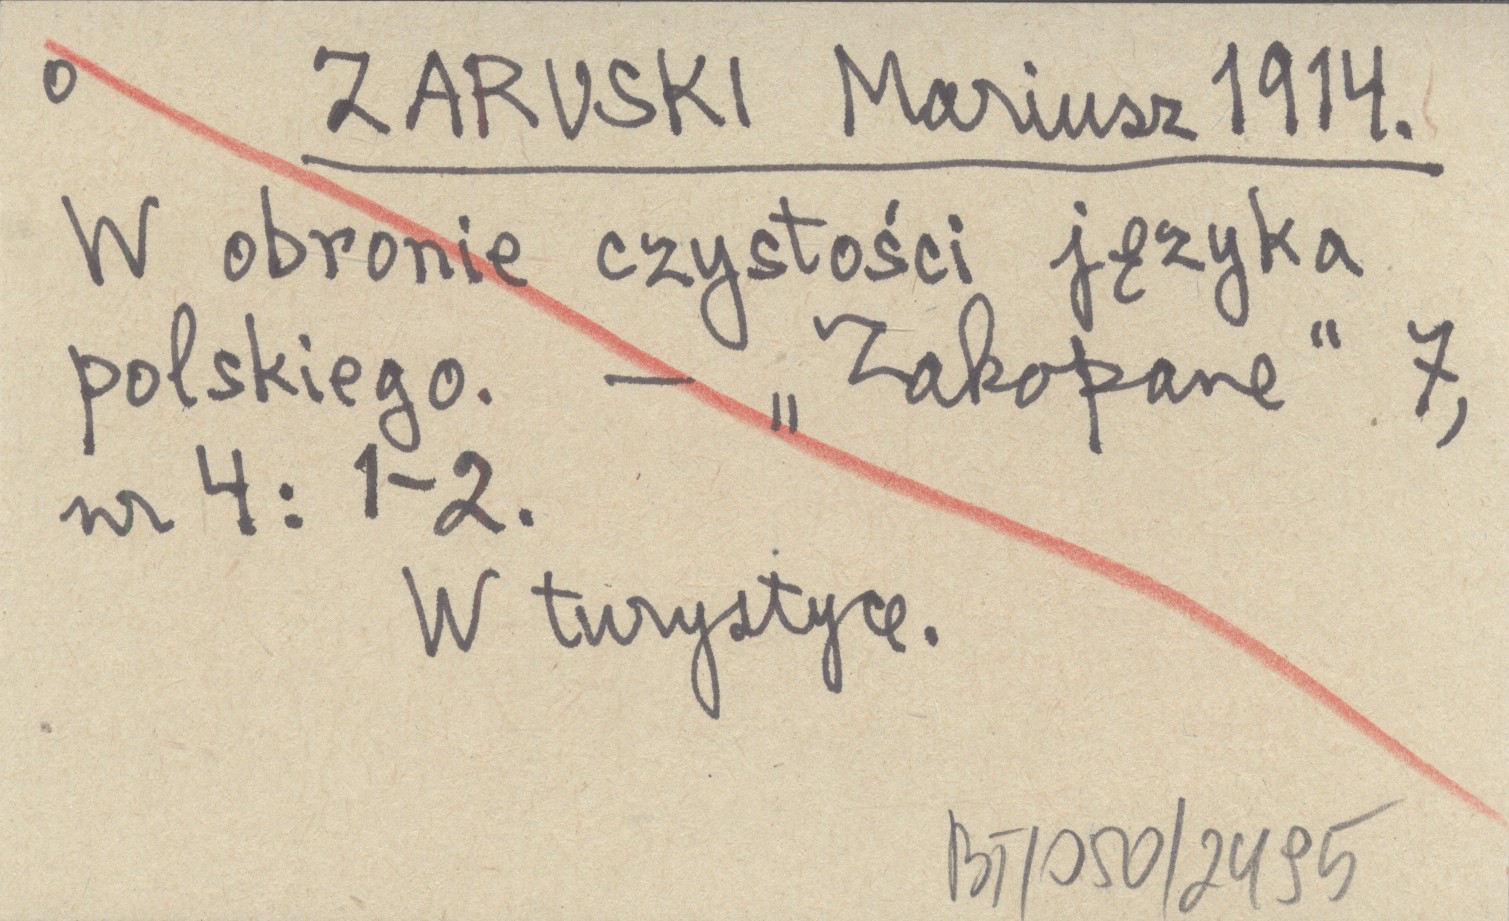 o ZARUSKI Mariusz 1914.
W obronie czystości języka
polskiego. — „Zakopane" 7,
nr 4: 1-2.
W turystyce.
BT/050/2495